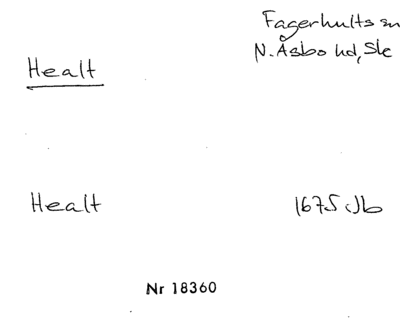 Fagerhults sn
Healt
N. Åsbo hd, Sk
Healt
1675 Jb
Nr 18360